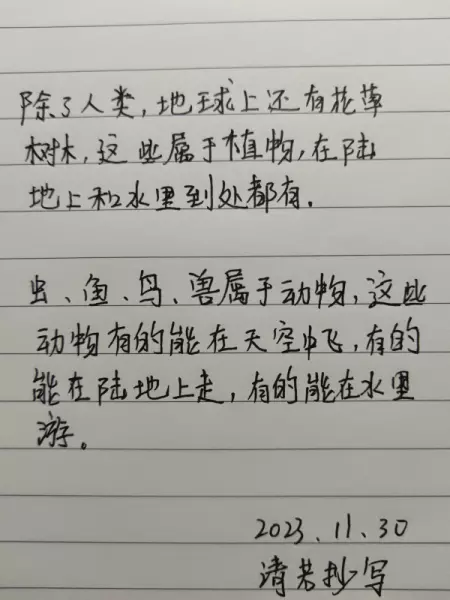 除了人类，地球上还有花草
树木，这些属于植物，在陆
地上和水里到处都有．
虫、鱼、鸟、兽属于动物，这些
动物有的能在天空中飞，有的
能在陆地上走，有的能在水里
游。
2023.11.30
清若抄写